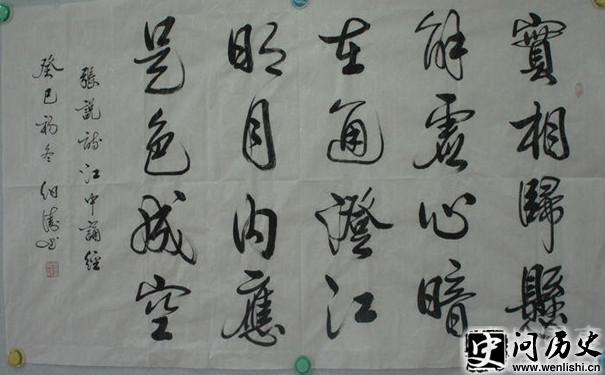 實相歸懸
解虛心暗
在通澄江
明月内應
是色成空
張説詩江中誦經
癸巳初冬
问历史
www.wenlishi.cn